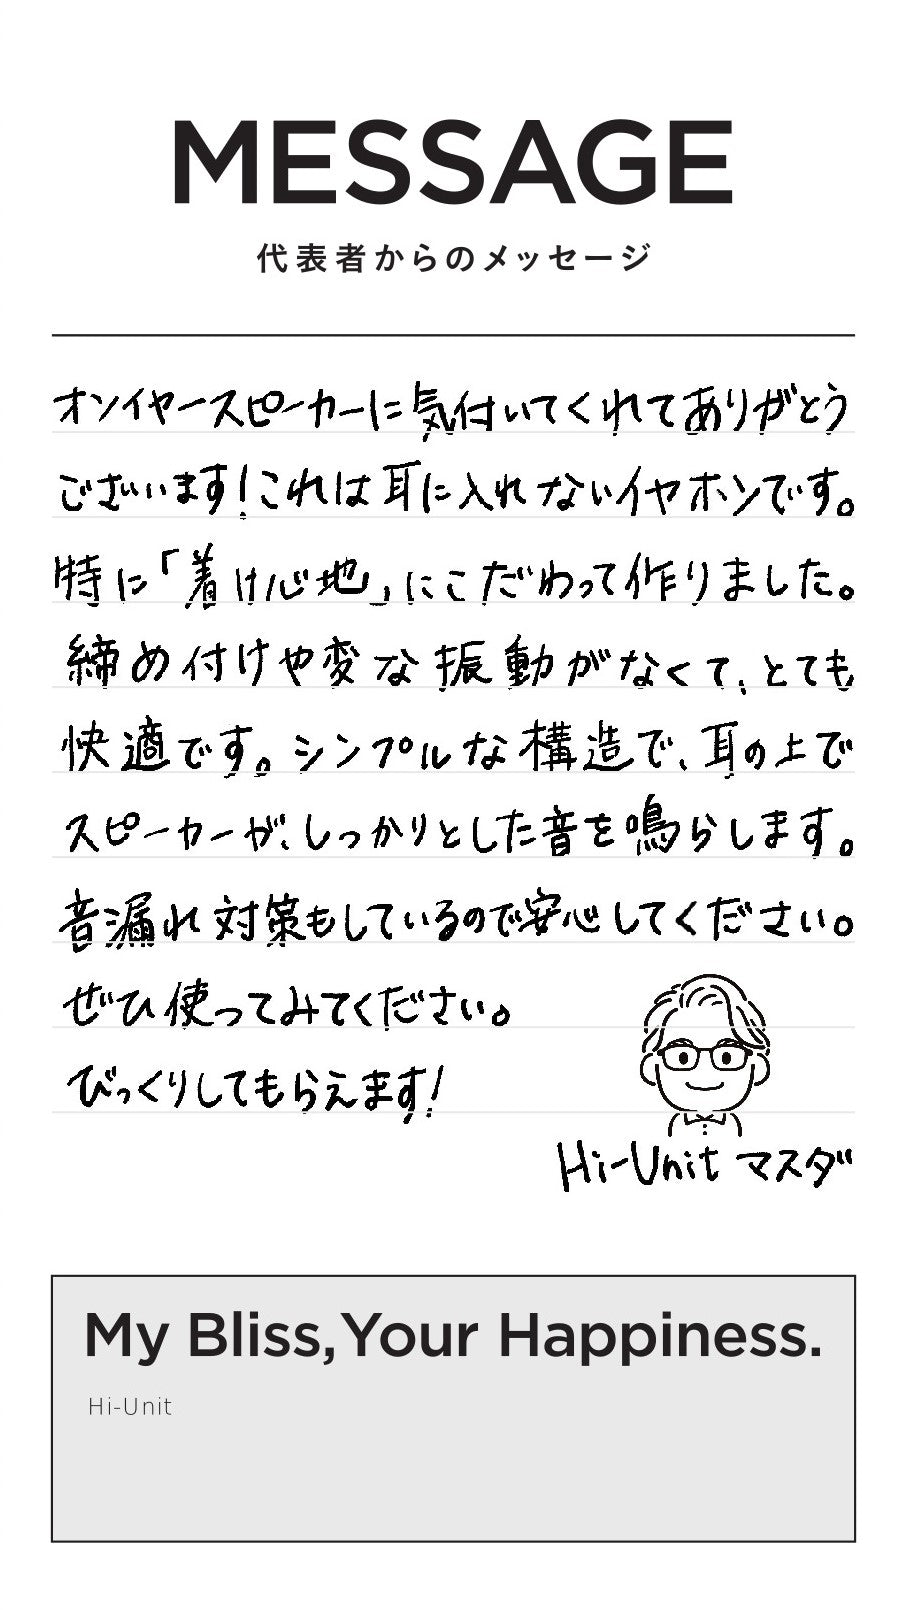 MESSAGE
代表者からのメッセージ
オンイヤースピーカーに気付いてくれてありがとう
ございます！これは耳に入れないイヤホンです。
特に「着け心地」にこだわって作りました。
締め付けや変な振動がなくて、とても
快適です。シンプルな構造で、耳の上で
スピーカーが、しっかりとした音を鳴らします。
音漏れ対策もしているので安心してください。
ぜひ使ってみてください。
びっくりしてもらえます！
Hi-Unit マスダ
My Bliss,Your Happiness.
Hi-Unit